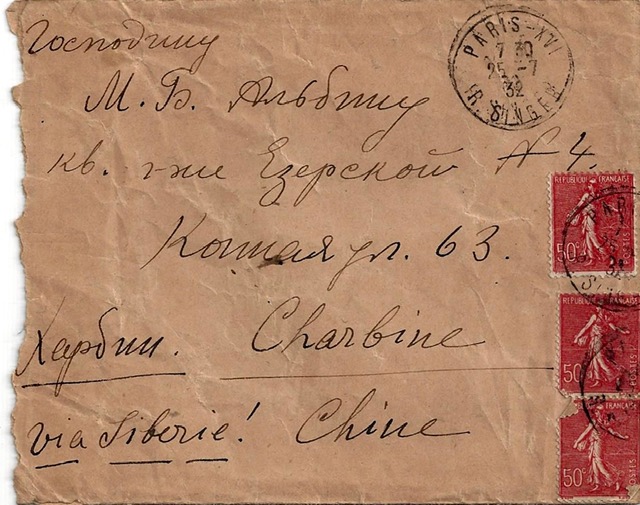 Господину
PARIS-XVI
7 30
25 -7
32
R. SINGER
М. Б. Альбину
кв. г-жи Езерской № 4.
Конная ул. 63.
REPUBLIQUE FRANÇAISE
50c
Харбин. Charbine
REPUBLIQUE FRANÇAISE
50c
via Siberie! Chine
FRANÇAISE
50c
POSTES